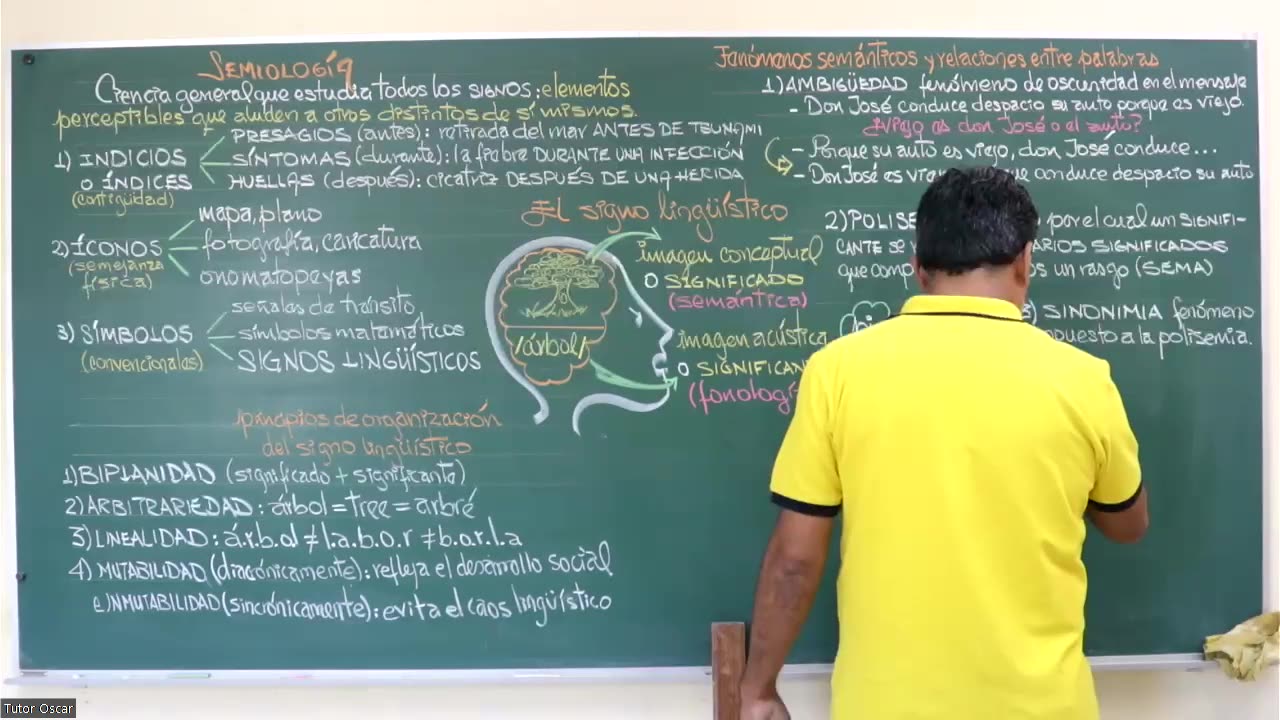 SEMIOLOGÍA
Ciencia general que estudia todos los SIGNOS: elementos
perceptibles que aluden a otros distintos de sí mismos.
1) INDICIOS
O ÍNDICES
(contigüidad)
PRESAGIOS (antes): retirada del mar ANTES DE TSUNAMI
SÍNTOMAS (durante): la fiebre DURANTE UNA INFECCIÓN
HUELLAS (después): cicatriz DESPUÉS DE UNA HERIDA
2) ÍCONOS
(semejanza
física)
mapa, plano
fotografía, caricatura
onomatopeyas
3) SÍMBOLOS
(convencionales)
señales de tránsito
símbolos matemáticos
SIGNOS LINGÜÍSTICOS
El signo lingüístico
imagen conceptual
O SIGNIFICADO
(semántica)
/árbol/
imagen acústica
O SIGNIFICAN
(fonologí
principios de organización
del signo lingüístico
1) BIPLANIDAD (significado + significante)
2) ARBITRARIEDAD: árbol = tree = arbré
3) LINEALIDAD: á.r.b.o.l ≠ l.a.b.o.r ≠ b.o.r.l.a
4) MUTABILIDAD (diacrónicamente): refleja el desarrollo social
e INMUTABILIDAD (sincrónicamente): evita el caos lingüístico
Fenómenos semánticos y relaciones entre palabras
1) AMBIGÜEDAD fenómeno de oscuridad en el mensaje
- Don José conduce despacio su auto porque es viejo.
¿Viejo es don José o el auto?
- Porque su auto es viejo, don José conduce...
- Don José es ue conduce despacio su auto
2) POLISE por el cual un SIGNIFI-
CANTE SE ARIOS SIGNIFICADOS
que comp s un rasgo (SEMA)
3) SINONIMIA fenómeno
puesto a la polisemia.
Tutor Oscar